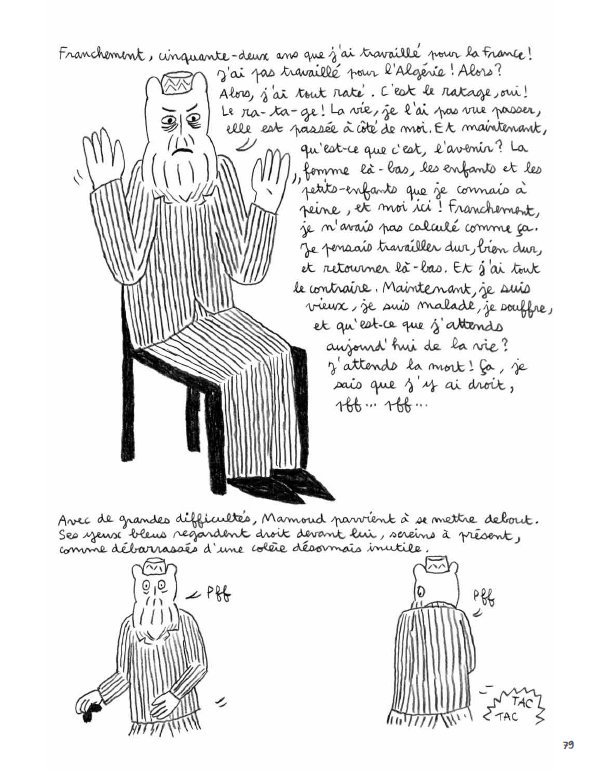 Franchement, cinquante-deux ans que j'ai travaillé pour la France!
J'ai pas travaillé pour l'Algérie! Alors?
Alors, j'ai tout raté. C'est le ratage, oui!
Le ra-ta-ge! La vie, je l'ai pas vue passer,
elle est passée à côté de moi. Et maintenant,
qu'est-ce que c'est, l'avenir? La
femme là-bas, les enfants et les
petits-enfants que je connais à
peine, et moi ici! Franchement,
je n'avais pas calculé comme ça.
Je pensais travailler dur, bien dur,
et retourner là-bas. Et j'ai tout
le contraire. Maintenant, je suis
vieux, je suis malade, je souffre,
et qu'est-ce que j'attends
aujourd'hui de la vie?
J'attends la mort! Ça, je
sais que j'y ai droit,
pff... pff...
Avec de grandes difficultés, Mamoud parvient à se mettre debout.
Ses yeux bleus regardent droit devant lui, sereins à présent,
comme débarrassés d'une colère désormais inutile.
Pff
Pff
TAC
TAC
79